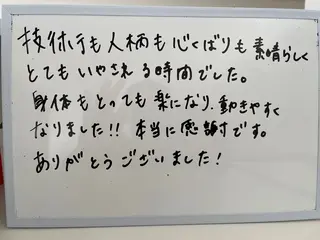 技術も人柄も心くばりも素晴らしく
とてもいやされる時間でした。
身体もとっても楽になり、動きやすく
なりました!! 本当に感謝です。
ありがとうございました!